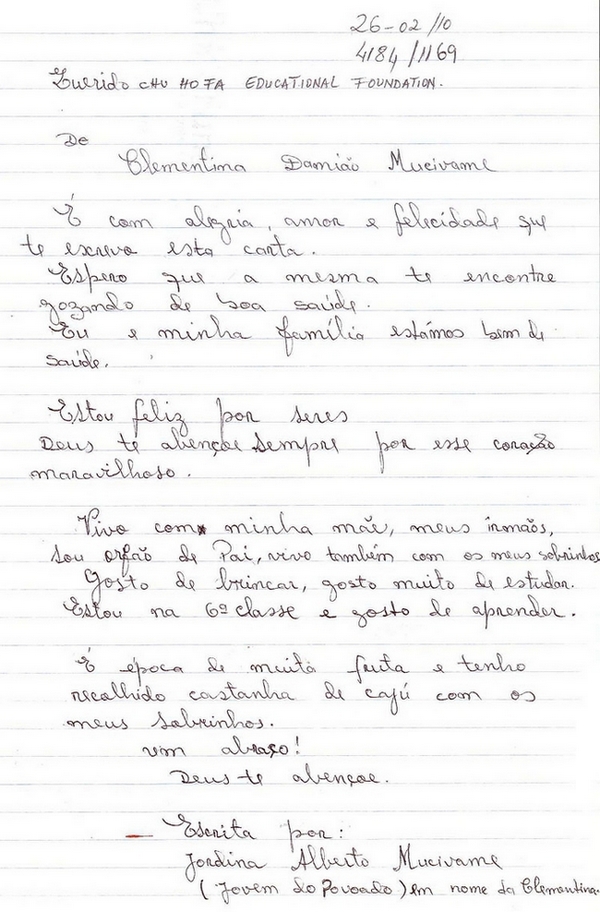 26-02/10
4184/1169
Querido CHU HO FA EDUCATIONAL FOUNDATION.
De
Clementina Damião Mucivame
É com alegria, amor e felicidade que
te escrevo esta carta.
Espero que a mesma te encontre
gozando de boa saúde.
Eu e minha família estámos bem de
saúde.
Estou feliz por seres
Deus te abençoe sempre por esse coração
maravilhoso.
Vivo com minha mãe, meus irmãos,
sou orfão de Pai, vivo também com os meus sobrinhos
Gosto de brincar, gosto muito de estudar.
Estou na 6ª classe e gosto de aprender.
É epoca de muita fruta e tenho
recolhido castanha de cajú com os
meus sobrinhos.
um abraço!
Deus te abençoe.
— Escrita por:
Jordina Alberto Mucivame
(Jovem do Povoado) em nome da Clementina.